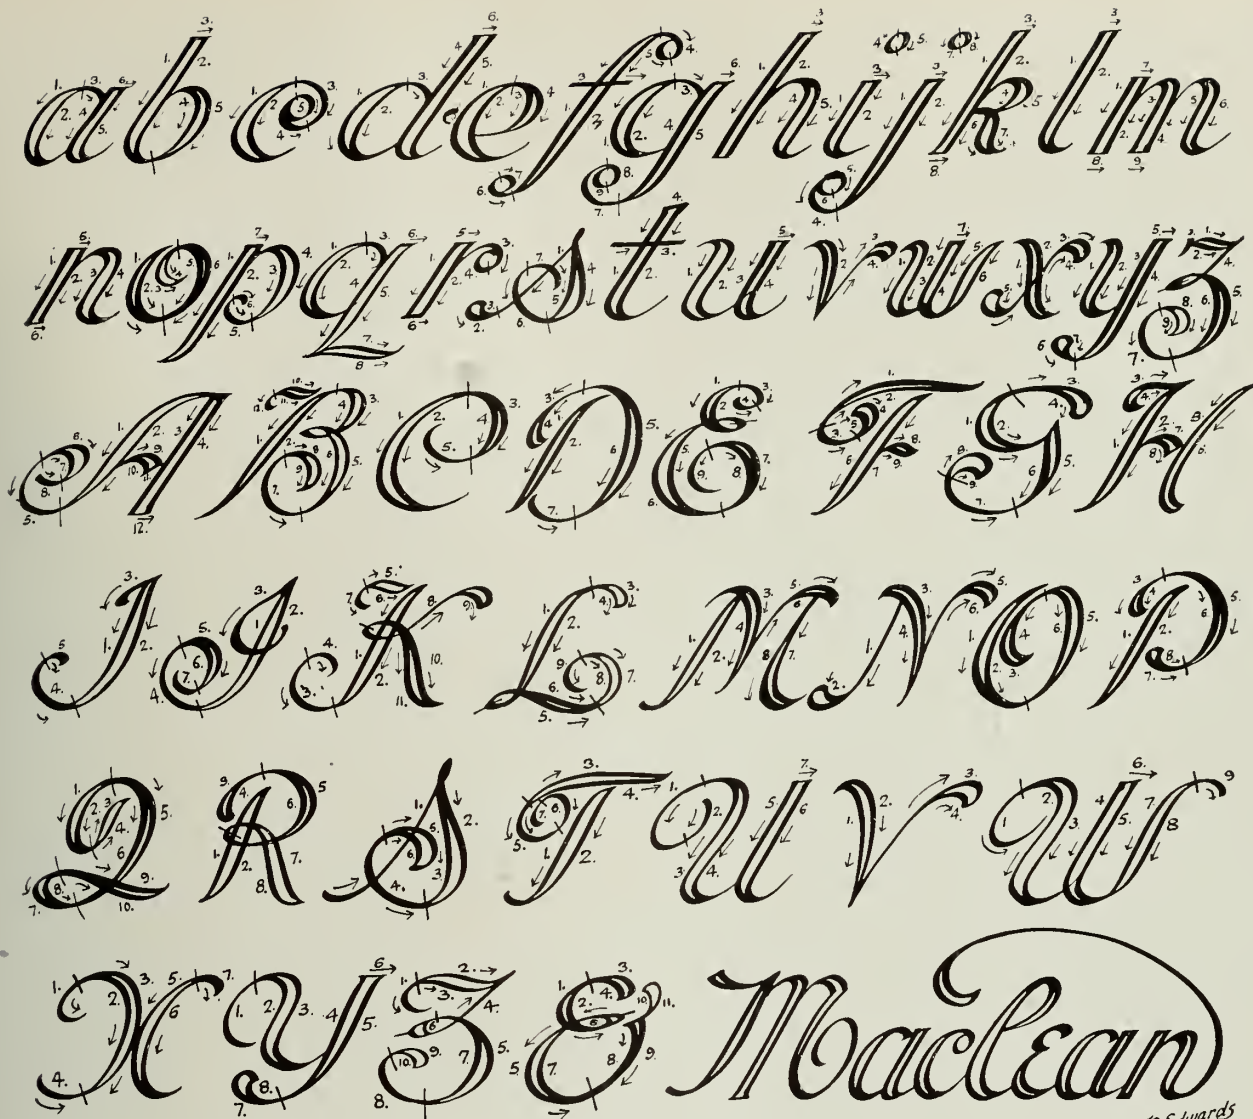 a b c d e f g h i j k l m
n o p q r s t u v w x y z
A B C D E F G H
I J K L M N O P
Q R S T U V W
X Y Z & Maclean
Edwards